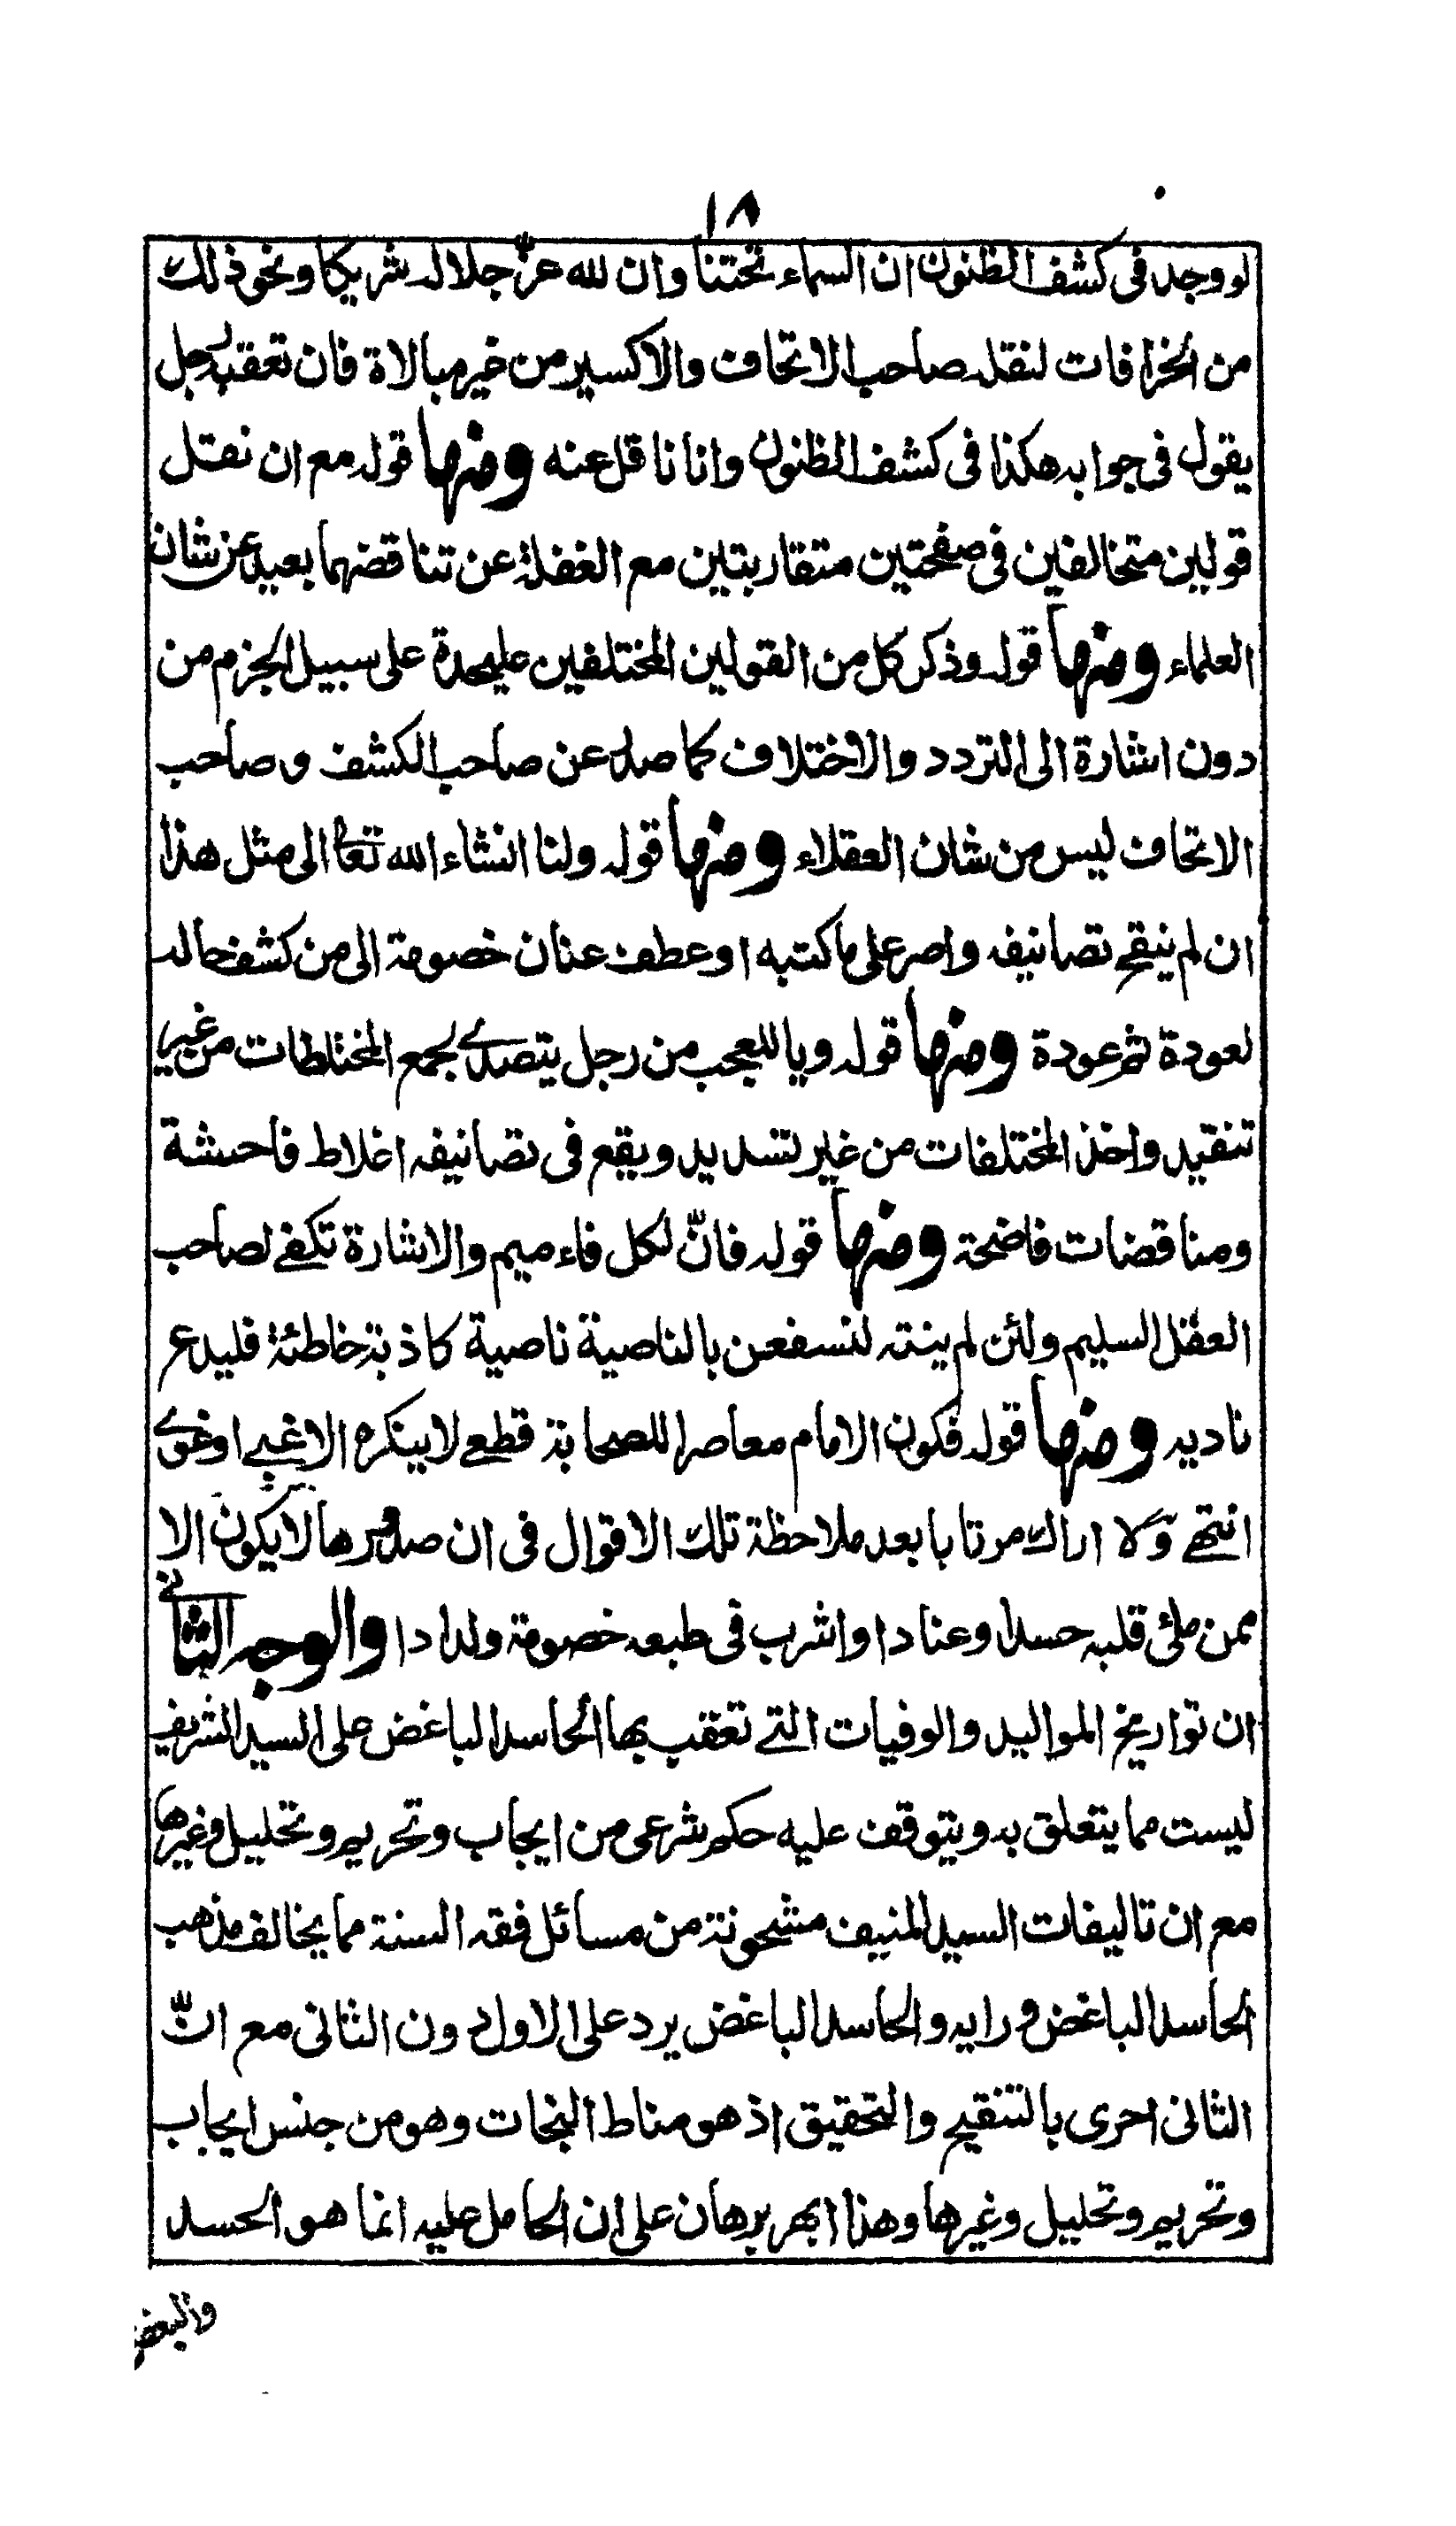 ١٨
لو وجد فى كشف الظنون ان السماء تحتنا وان لله عزّ جلاله شريكا ونحو ذلك
من الخرافات لنقله صاحب الاتحاف والاكسير من خير مبالاة فان تعقبه رجل
يقول فى جوابه هكذا فى كشف الظنون وانا ناقل عنه ومنها قوله مع ان نقل
قولين متخالفين فى صفحتين متقاربتين مع الغفلة عن تناقضهما بعيد عن شان
العلماء ومنها قوله وذكر كل من القولين المختلفين عليحدة على سبيل الجزم من
دون اشارة الى التردد والاختلاف كما صدر عن صاحب الكشف وصاحب
الاتحاف ليس من شان العقلاء ومنها قوله ولنا انشاء الله تعا الى مثل هذا
ان لم ينقح تصانيفه واصر على ما كتبه او عطف عنان خصومة الى من كشف حاله
لعودة ثم عودة ومنها قوله ويا للعجب من رجل يتصدى لجمع المختلطات من غير
تنقيد واخذ المختلفات من غير تسديد ويقع فى تصانيفه اغلاط فاحشة
ومناقضات فاضحة ومنها قوله فانّ لكل فاء ميم والاشارة تكفى لصاحب
العقل السليم ولئن لم ينته لنسفعن بالناصية ناصية كاذبة خاطئة فليدع
ناديه ومنها قوله فكون الامام معاصرا للصحابة قطعى لا ينكره الا غبى او غوى
انتهى ولا اراك مرتابا بعد ملاحظة تلك الاقوال فى ان صدورها لا يكون الا
ممن ملئ قلبه حسدا وعنادا واشرب فى طبعه خصومة ولدادا والوجه الثانى
ان تواريخ المواليد والوفيات التى تعقب بها الحاسد الباغض على السيد الشريف
ليست مما يتعلق به ويتوقف عليه حكم شرعى من ايجاب وتحريم وتحليل وغيرها
مع ان تاليفات السيد المنيف مشحونة من مسائل فقه السنة مما يخالف مذهب
الحاسد الباغض ورايه والحاسد الباغض يرد على الاول دون الثانى مع انّ
الثانى احرى بالتنقيح والتحقيق اذ هو مناط النجات وهو من جنس ايجاب
وتحريم وتحليل وغيرها وهذا ابهر برهان على ان الحامل عليه انما هو الحسد
والبغض